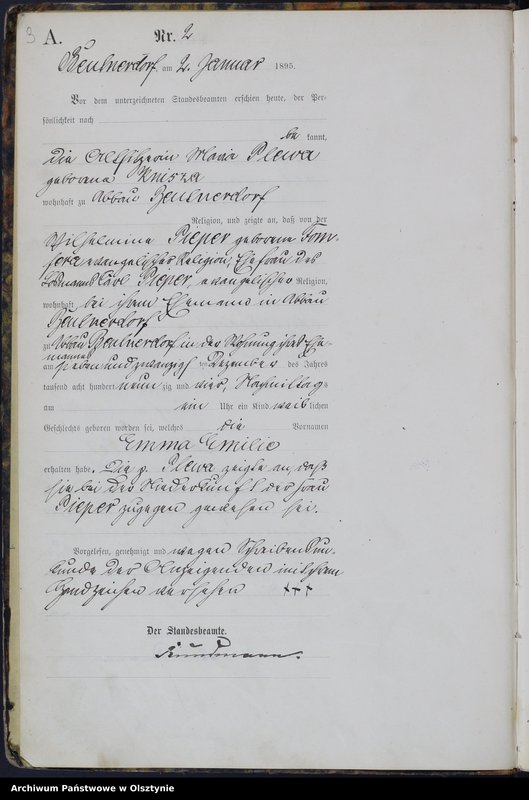 3 A. Nr. 2
Beutnerdorf, am 2. Januar 1895.
Vor dem unterzeichneten Standesbeamten erschien heute, der Per-
sönlichkeit nach
be kannt,
die Altsitzerin Maria Plewa
geborene Knisza
wohnhaft zu Abbau Beutnerdorf
Religion, und zeigte an, daß von der
Wilhelmine Pieper geborene Tom-
evangelischer Religion, Ehefrau des
Losmanns Carl Pieper, evangelischer Religion,
wohnhaft bei ihrem Ehemann in Abbau
Beutnerdorf
zu Abbau Beutnerdorf in der Wohnung ihres Ehe-
mannes
am sieben und zwanzigsten Dezember des Jahres
tausend acht hundert neun zig und vier, Nachmittags
um ein Uhr ein Kind weib lichen
Geschlechts geboren worden sei, welches die Vornamen
Emma Emilie
erhalten habe. Die p. Plewa zeigte an, daß
sie bei der Niederkunft der Frau
Pieper zugegen gewesen sei.
Vorgelesen, genehmigt und wegen Schreibensun-
kunde der Anzeigenden mit ihrem
Handzeichen versehen +++
Der Standesbeamte.
Archiwum Państwowe w Olsztynie